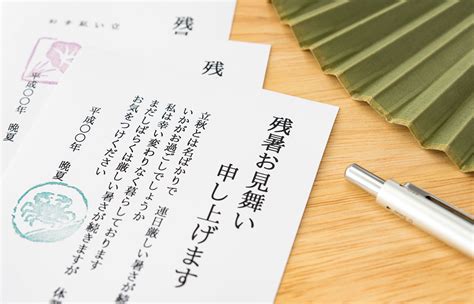 残暑お見舞い
申し上げます
立秋とは名ばかりで 連日厳しい暑さが
いかがお過ごしでしょうか
私は幸い変わりなく暮らしております
まだしばらくは厳しい暑さが続きますが 休
お気をつけください
平成〇〇年 晩夏
残
平成〇〇年 晩夏
残